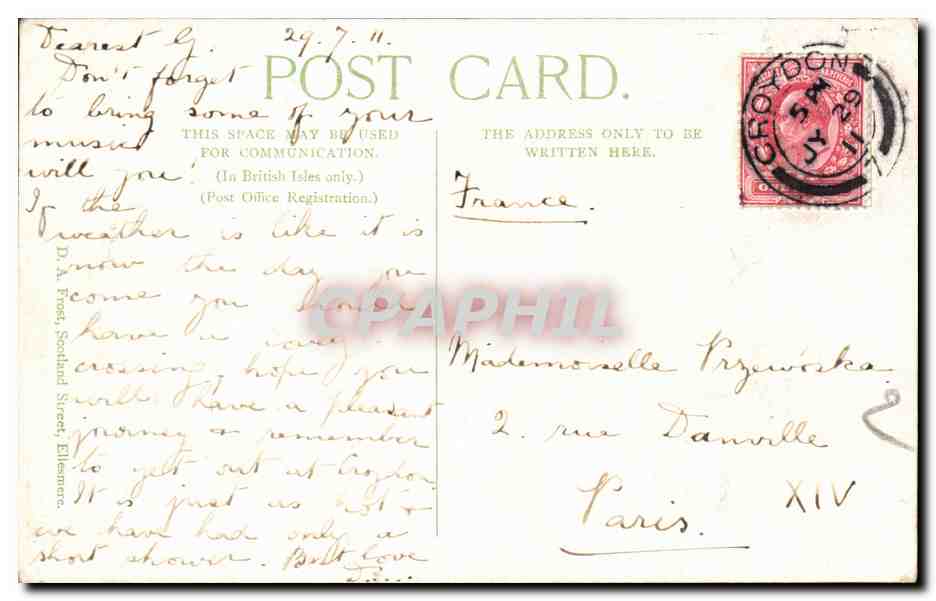 Dearest G. 29.7.11.
POST CARD.
Don't forget
to bring some of your
music
will you!
THIS SPACE MAY BE USED
FOR COMMUNICATION.
(In British Isles only.)
(Post Office Registration.)
If the
weather is like it is
now the day you
come you
have a
crossing, hope you
will have a pleasant
journey & remember
to get out at Croydon
It is just as hot &
we have had only a
short shower. Best love
D. A. Frost, Scotland Street, Ellesmere.
THE ADDRESS ONLY TO BE
WRITTEN HERE.
CROYDON
5 PM
JY 29
11
France.
Mademoiselle Przewóska
2. rue Danville
Paris.
XIV
2
CPAPHIL